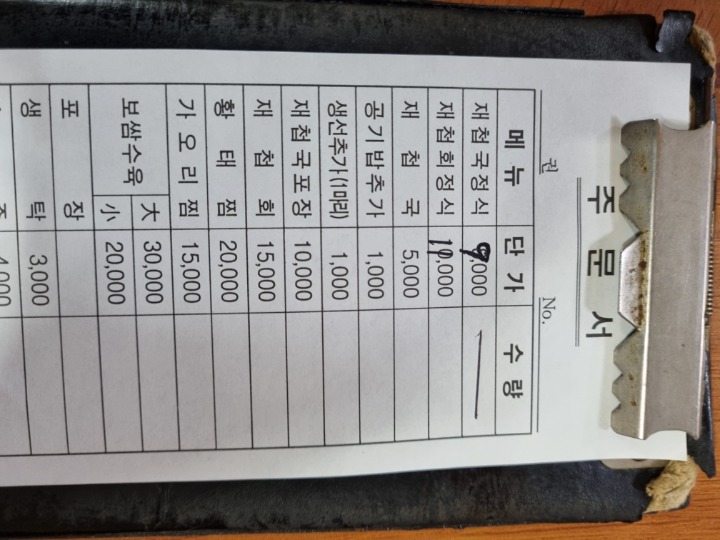 주 문 서
권 No.
메 뉴 단 가 수 량
재첩국정식 9,000 一
재첩회정식 11,000
재 첩 국 5,000
공기밥추가 1,000
생선추가(1마리) 1,000
재첩국포장 10,000
재 첩 회 15,000
황 태 찜 20,000
가 오 리 찜 15,000
보쌈수육 大 30,000
小 20,000
포 장
생 탁 3,000
4,000